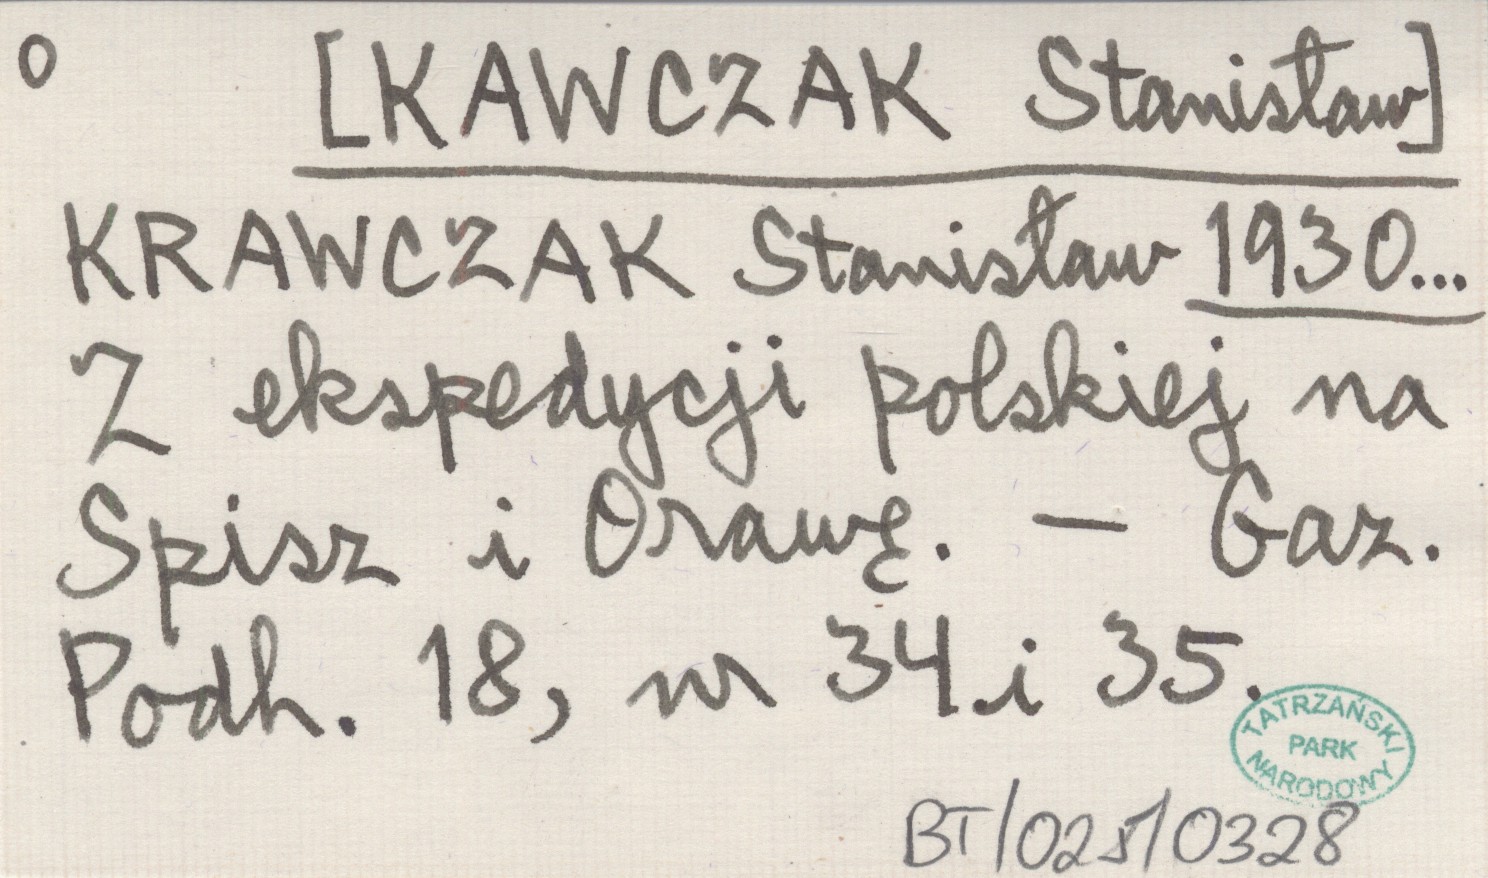 o [KAWCZAK Stanisław]
KRAWCZAK Stanisław 1930...
Z ekspedycji polskiej na
Spisz i Orawę. — Gaz.
Podh. 18, nr 34 i 35.
TATRZAŃSKI
PARK
NARODOWY
BT/025/0328